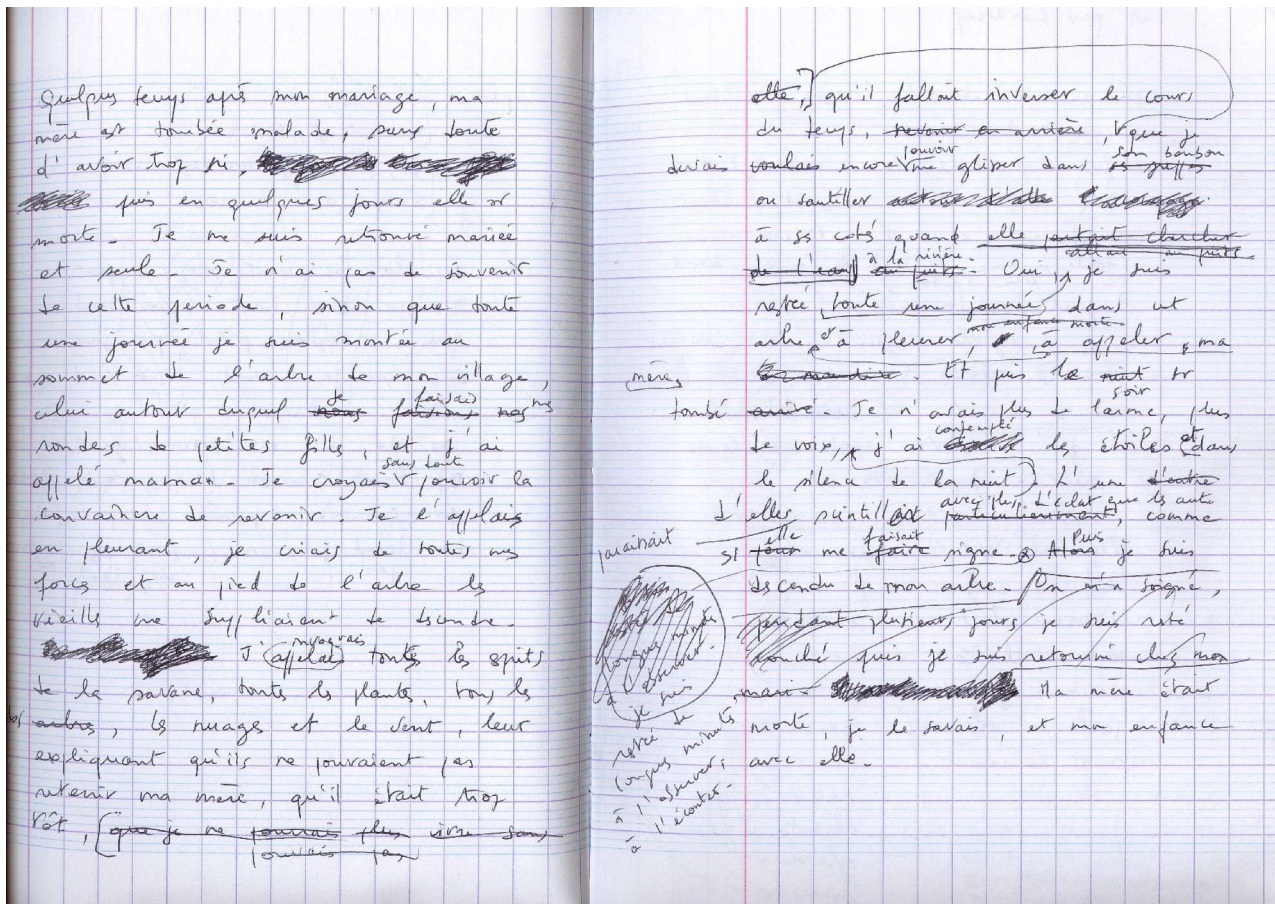 Quelques temps après mon mariage, ma
mère est tombée malade, sans doute
d'avoir trop ri,
puis en quelques jours elle est
morte. Je me suis retrouvée mariée
et seule. Je n'ai pas de souvenir
de cette periode, sinon que toute
une journée je suis montée au
sommet de l'arbre de mon village,
je faisais
celui autour duquel nous faisions nos mes
rondes de petites filles, et j'ai
sans doute
appelé maman. Je croyais pouvoir la
convaincre de revenir. Je l'appelais
en pleurant, je criais de toutes mes
forces et au pied de l'arbre les
vieilles me suppliaient de descendre.
invoquais
J'appelais toutes les esprits
de la savane, toutes les plantes, tous les
arbres, les nuages et le vent, leur
expliquant qu'ils ne pouvaient pas
retenir ma mère, qu'il était trop
tôt, que je ne pourrais plus vivre sans
pouvais pas
elle, qu'il fallait inverser le cours
du temps, revenir en arrière, que je
pouvoir
son boubou
devais voulais encore me glisser dans
ou sautiller
à ses cotés quand elle partait chercher
allait au puits
de l'eau au puits. à la rivière. Oui, je suis
restée toute une journée dans cet
mon enfance morte
arbre, et à pleurer, à appeler ma
mère, . Et puis le nuit est
soir
tombé arrivé. Je n'avais plus de larme, plus
contemplé
de voix, j'ai les étoiles et dans
le silence de la nuit. L'une d'entre
avec plus d'éclat que les autres
d'elles scintillait particulièrement, comme
paraissait
elle faisait
si pour me faire signe. Alors Puis je suis
descendu de mon arbre. On m'a soigné,
pendant plusieurs jours je suis resté
couché puis je suis retourné chez mon
mari. Ma mère était
morte, je le savais, et mon enfance
avec elle.
longues minutes
à l'observer.
je suis
restée de
longues minutes
à l'observer,
à l'écouter.